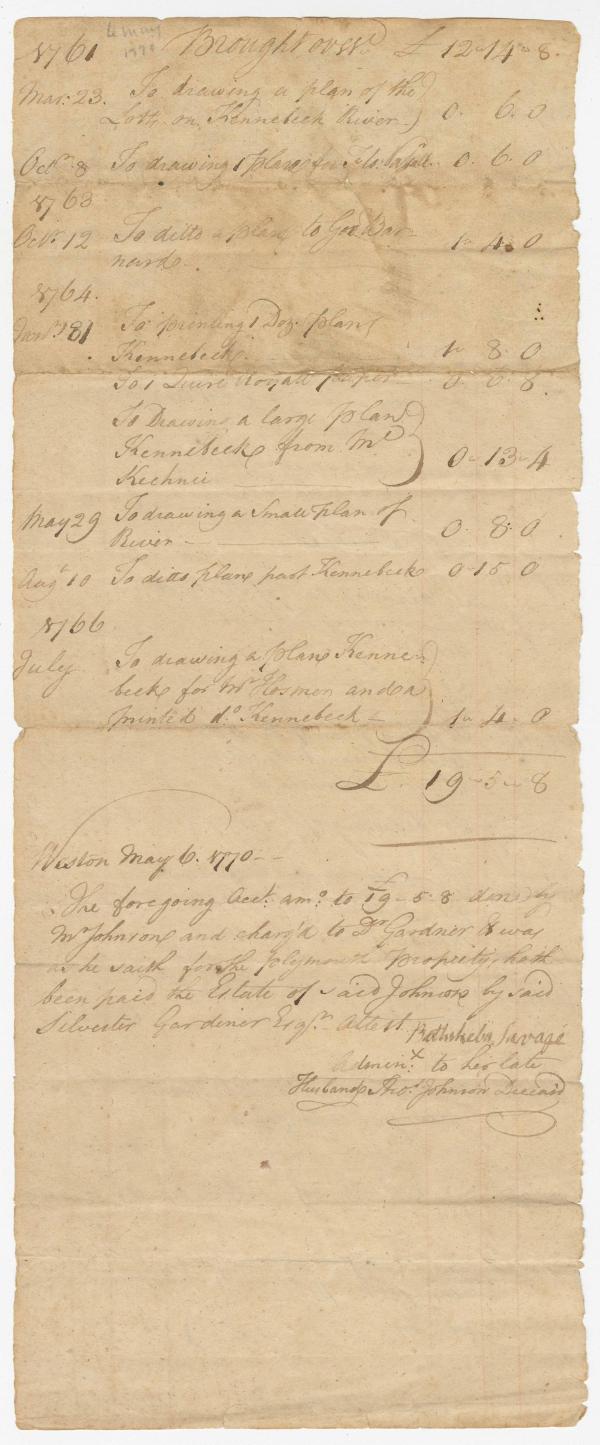 6 May
1770
1761 Brought over £ 12-14-8.
Mar: 23. To drawing a plan of the
Lotts on Kennebeck River 0. 6. 0
Octr. 8 To drawing 1 plan for 0. 6. 0
1763
Octr. 12 To ditto a plan to Gov Bar-
nard 1. 4. 0
1764.
31 To printing 1 Doz. plans
Kennebeck 1. 8. 0
To 1 Quire Royall paper 0. 6. 8
To Drawing a large plan
Kennebeck from Mc
Kechnie 0-13-4
May 29 To drawing a Small plan of
River 0. 8. 0
Augt 10 To ditto plan part Kennebeck 0-15 0
1766.
July To drawing a plan Kenne-
beck for Mr Hosmer and a
printed do. Kennebeck 1. 4. 0
£. 19-5-8
Weston May 6. 1770
The foregoing Acct. amo. to £19-5-8 done by
Mr Johnson and charg'd to Dr Gardner & was
as he saith for the plymouth Property, hath
been paid the Estate of said Johnson by said
Silvester Gardiner Esqr. Attest. Bathsheba Savage
Adminx. to her late
Husband Thos. Johnson Deceasd